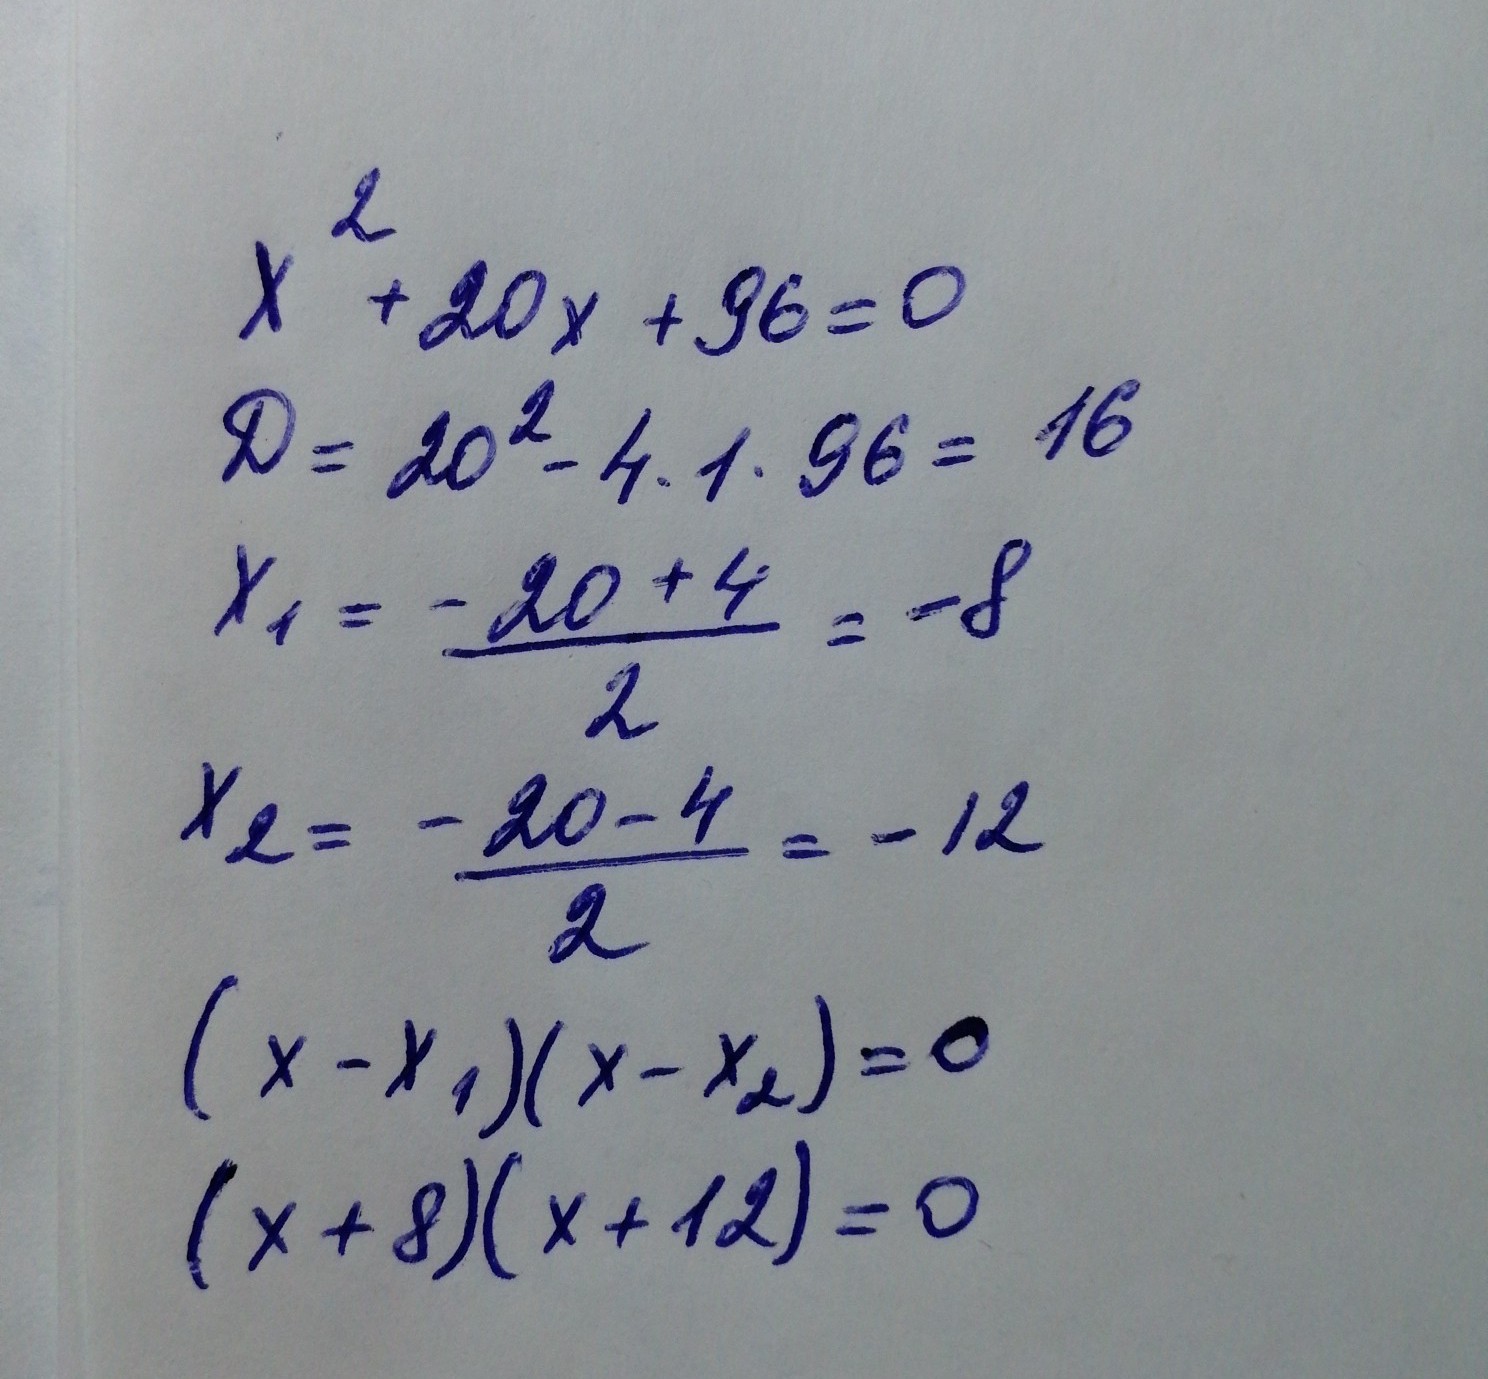 x² + 20x + 96 = 0
D = 20² - 4 · 1 · 96 = 16
x₁ = (-20 + 4)/2 = -8
x₂ = (-20 - 4)/2 = -12
(x - x₁)(x - x₂) = 0
(x + 8)(x + 12) = 0